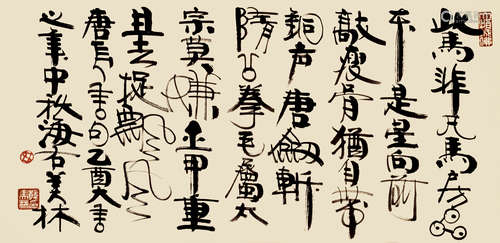 此馬非凡馬房
本是星向前
敲瘦骨猶自帶
銅声唐劍斬
隋公拳毛屬太
宗莫嫌金甲重
且去捉飄風
唐長吉句乙酉
之年中秋海右美林